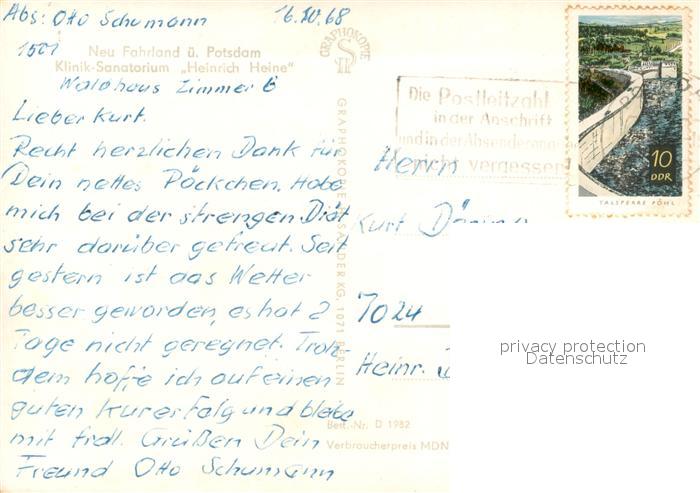 Abs: Otto Schumann 16.10.68
1501
Neu Fahrland ü. Potsdam
Klinik-Sanatorium „Heinrich Heine"
Waldhaus Zimmer 6
Lieber Kurt.
Recht herzlichen Dank für
Dein nettes Päckchen. Habe
mich bei der strengen Diät
sehr darüber gefreut. Seit
gestern ist das Wetter
besser geworden, es hat 2
Tage nicht geregnet. Trotz
dem hoffe ich auf einen
guten Kurerfolg und bleibe
mit frdl. Grüßen Dein
Freund Otto Schumann
GRAPHOKOPIE
GRAPHOKOPIE SANDER KG, 1071 BERLIN
Best.-Nr. D 1982
Verbraucherpreis MDN
Die Postleitzahl
in der Anschrift
und in der Absenderangabe
nicht vergessen
10
DDR
TALSPERRE PÖHL
Herrn
Kurt
7024
Heinr.
privacy protection
Datenschutz